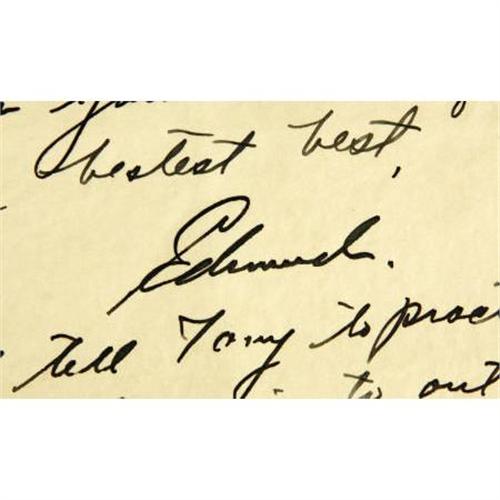 bestest best,
Edmund.
tell Tony to prac
to out